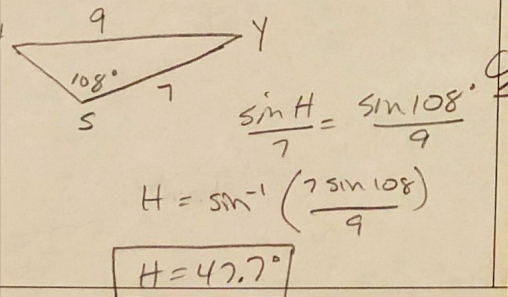 9
Y
108°
7
S
sin H / 7 = sin 108° / 9
H = sin⁻¹ (7 sin 108 / 9)
H = 47.7°